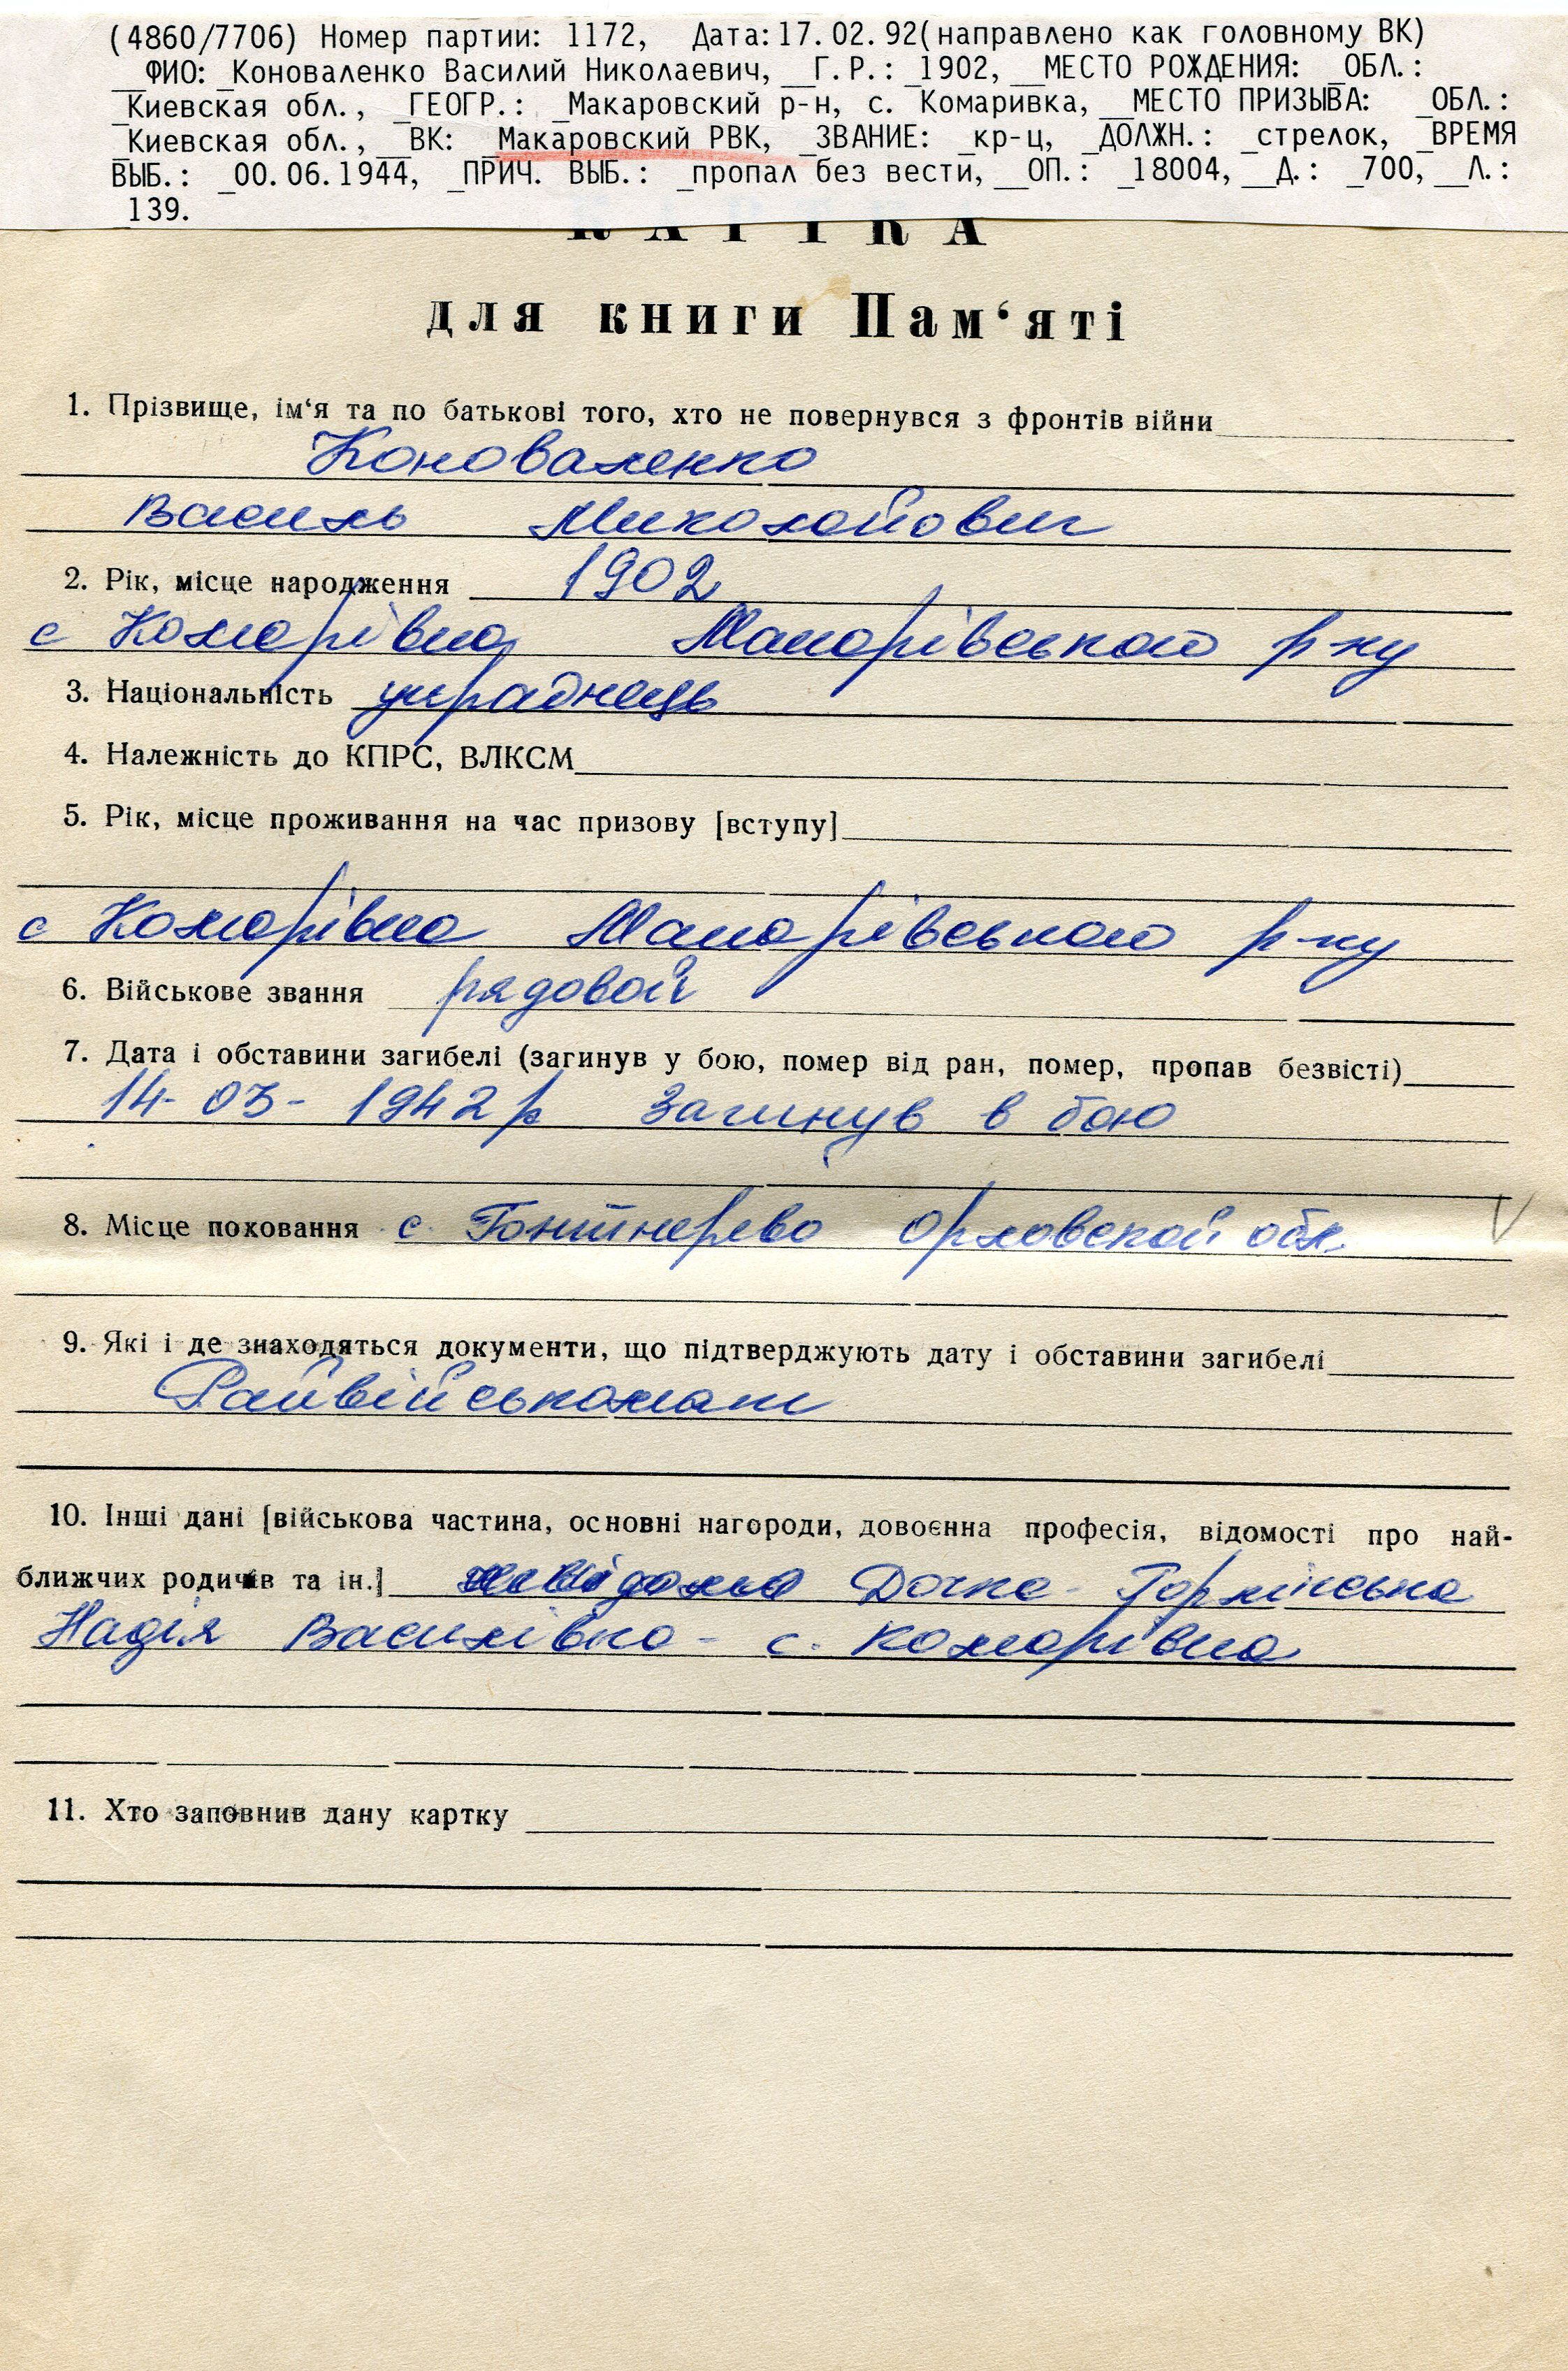 (4860/7706) Номер партии: 1172, Дата:17.02.92(направлено как головному ВК)
__ФИО: _Коноваленко Василий Николаевич, __Г.Р.: _1902, __МЕСТО РОЖДЕНИЯ: _ОБЛ.:
_Киевская обл., _ГЕОГР.: _Макаровский р-н, с. Комаривка, __МЕСТО ПРИЗЫВА: _ОБЛ.:
_Киевская обл., __ВК: _Макаровский РВК, _ЗВАНИЕ: _кр-ц, _ДОЛЖН.: _стрелок, _ВРЕМЯ
ВЫБ.: _00.06.1944, _ПРИЧ. ВЫБ.: _пропал без вести, __ОП.: _18004, __Д.: _700, __Л.:
_139.
КАРТКА
для книги Пам‘яті
1. Прізвище, ім‘я та по батькові того, хто не повернувся з фронтів війни
Коноваленко
Василь Миколайович
2. Рік, місце народження 1902
с Комарівка Макарівського р-ну
3. Національність українець
4. Належність до КПРС, ВЛКСМ
5. Рік, місце проживання на час призову [вступу]
с Комарівка Макарівського р-ну
6. Військове звання рядовой
7. Дата і обставини загибелі (загинув у бою, помер від ран, помер, пропав безвісті)
14-03-1942 р Загинув в бою
8. Місце поховання с. Орловской обл.
9. Які і де знаходяться документи, що підтверджують дату і обставини загибелі
Райвійськомат
10. Інші дані [військова частина, основні нагороди, довоєнна професія, відомості про най-
ближчих родичів та ін.] Дочка -
Надія Василівна - с. Комарівка
11. Хто заповнив дану картку